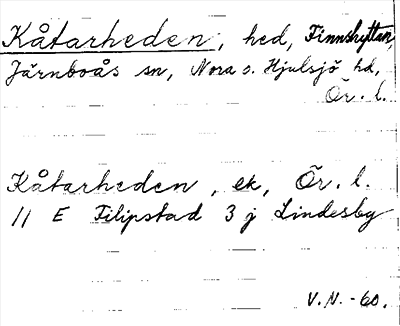 Kåtarheden, hed, Finnshyttan,
Järnboås sn, Nora o. Hjulsjö hd,
Ör. l.
Kåtarheden, ek, Ör. l.
11 E Filipstad 3 j Lindesby
V.N.-60.